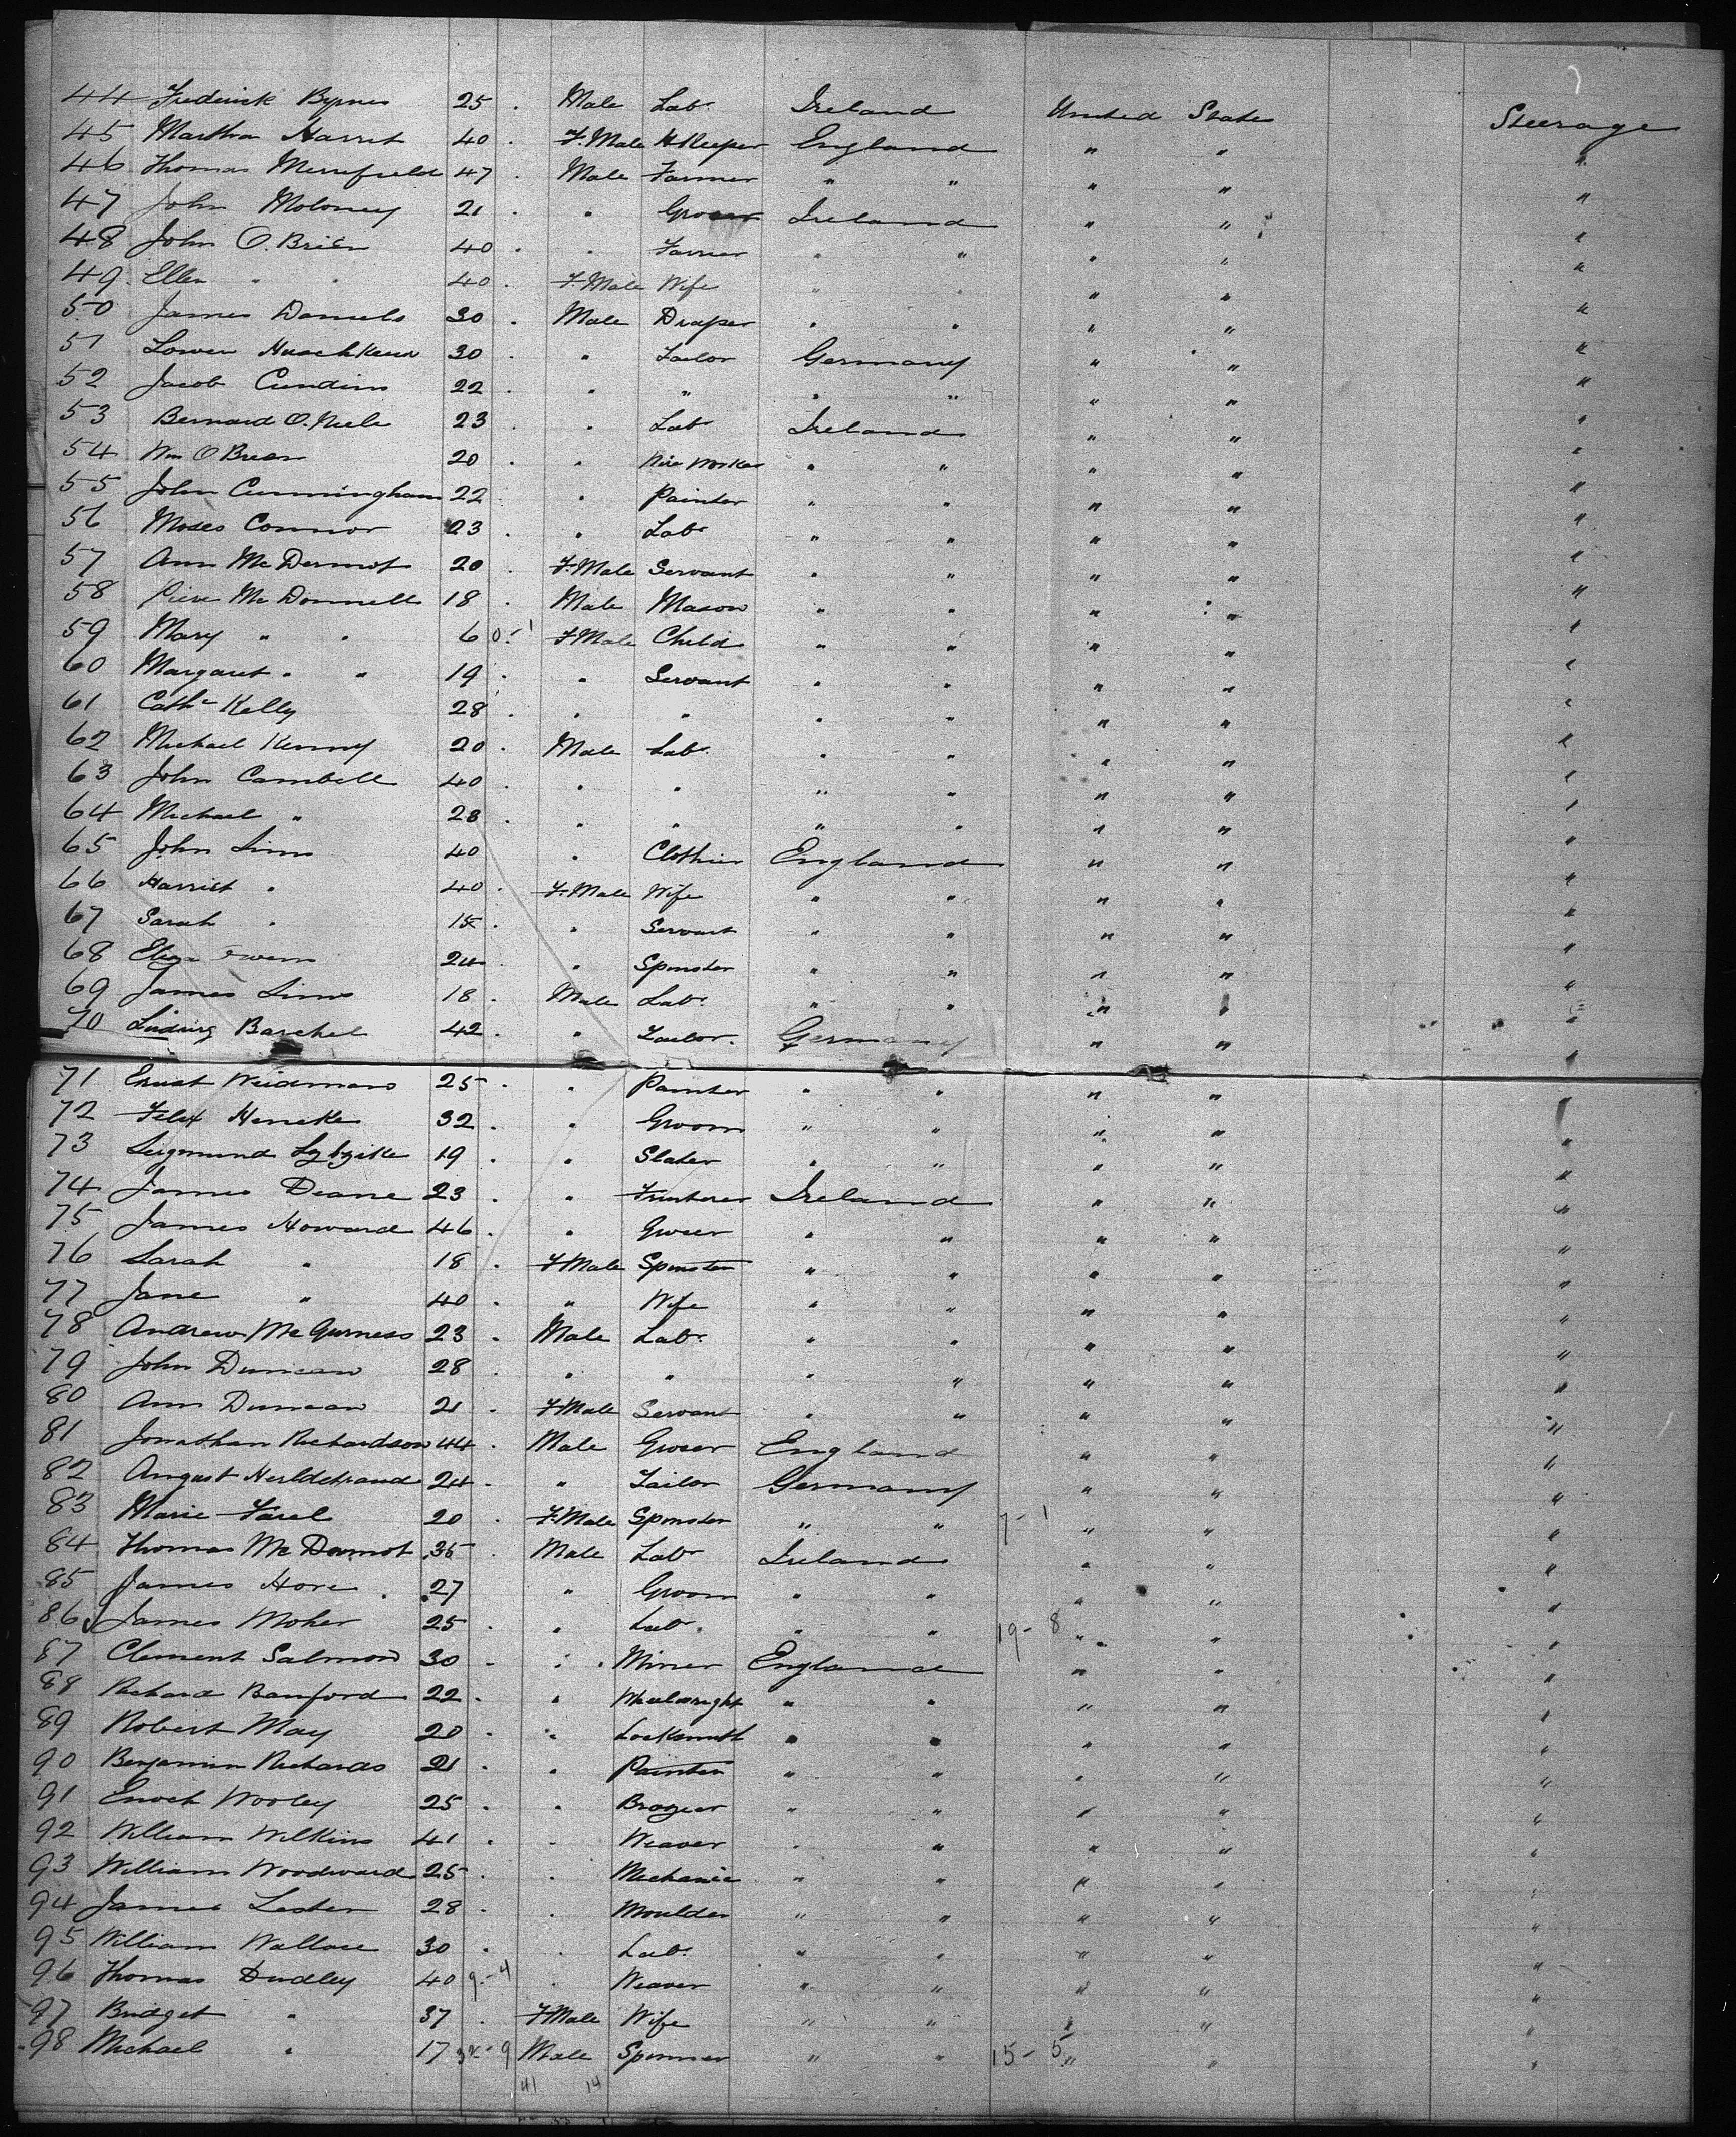 44 Frederick Byrnes 25 . Male Lab. Ireland United States Steerage
45 Martha Harris 40 . F.Male H.Keeper England " " "
46 Thomas Merrefield 47 . Male Farmer " " " " "
47 John Moloney 21 . " Grocer Ireland " " "
48 John O.Brien 40 . " Farmer " " " " "
49 Ellen " " 40 . F.Male Wife " " " " "
50 James Daniels 30 . Male Draper " " " " "
51 30 . " Tailor Germany " " "
52 Jacob 22 . " " " " " " "
53 Bernard O.Neile 23 . " Lab Ireland " " "
54 Wm O Brien 20 . " Wire Worker " " " " "
55 John Cunningham 22 . " Painter " " " " "
56 Moses Connor 23 . " Lab " " " " "
57 Ann McDermot 20 . F.Male Servant " " " " "
58 McDonnell 18 . Male Mason " " " " "
59 Mary " " 6 0-1 F.Male Child " " " " "
60 Margaret " " 19 . " Servant " " " " "
61 Cath Kelly 28 . " " " " " " "
62 Michael Kenny 20 . Male Lab. " " " " "
63 John Cambell 40 . " " " " " " "
64 Michael " 28 . " " " " " " "
65 John Sims 40 " Clothier England " " "
66 Harriet " 40 . F.Male Wife " " " " "
67 Sarah " 15 . " Servant " " " " "
68 Eliza Owens 24 . " Spinster " " " " "
69 James Sims 18 . Male Lab. " " " " "
70 Ludwig Barchel 42 . " Tailor. Germany " " "
71 Ernst Weidmann 25 . " Painter " " " " "
72 Felix Hencke 32 . " Groom " " " " "
73 Seigmund 19 . " Slater " " " " "
74 James Deane 23 . " Ireland " " "
75 James Howard 46 . " Grocer " " " " "
76 Sarah " 18 . F.Male Spinster " " " " "
77 Jane " 40 . " Wife " " " " "
78 Andrew McGurness 23 . Male Lab. " " " " "
79 John Duncan 28 . " " " " " " "
80 Ann Duncan 21 . F.Male Servant " " " " "
81 Jonathan Richardson 44 . Male Grocer England " " "
82 August 24 . " Tailor Germany " " "
83 Marie Farel 20 . F.Male Spinster " " 7-1 " " "
84 Thomas McDermot 35 . Male Lab Ireland " " "
85 James Hore . 27 " Groom " " " " "
86 James Moher 25 . " Lab. " " 19-8 " " "
87 Clement Salmon 30 . " Miner England " " "
88 Richard Banford 22 . " Wheelwright " " " " "
89 Robert May 20 . " Locksmith " " " " "
90 Benjamin Richards 21 . " Painter " " " " "
91 Enoch Wooley 25 . " Brazier " " " " "
92 William Wilkins 41 . " Weaver " " " " "
93 William Woodward 25 . " Mechanic " " " " "
94 James Lester 28 . " Moulder " " " " "
95 William Wallace 30 . " Lab. " " " " "
96 Thomas Dudley 40 9-4 " Weaver " " " " "
97 Bridget " 37 . F.Male Wife " " " " "
98 Michael " 17 32-9 Male Spinner " " 15-5 " " "
41 14